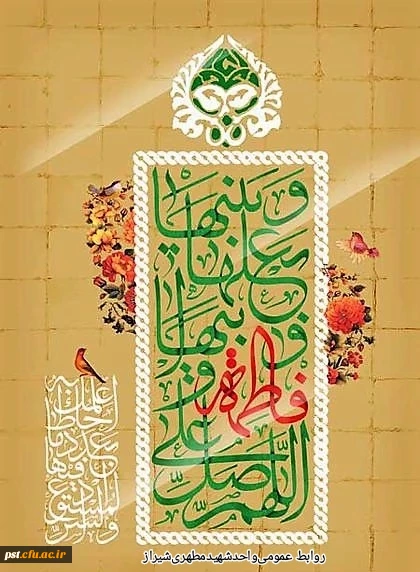 اللهم صل علی
فاطمة و
ابیها و
بعلها
و بنیها
والسر المستودع
فیها بعدد ما
احاط به علمك
pst.cfu.ac.ir
روابط عمومی‌واحدشهیدمطهری‌شیراز